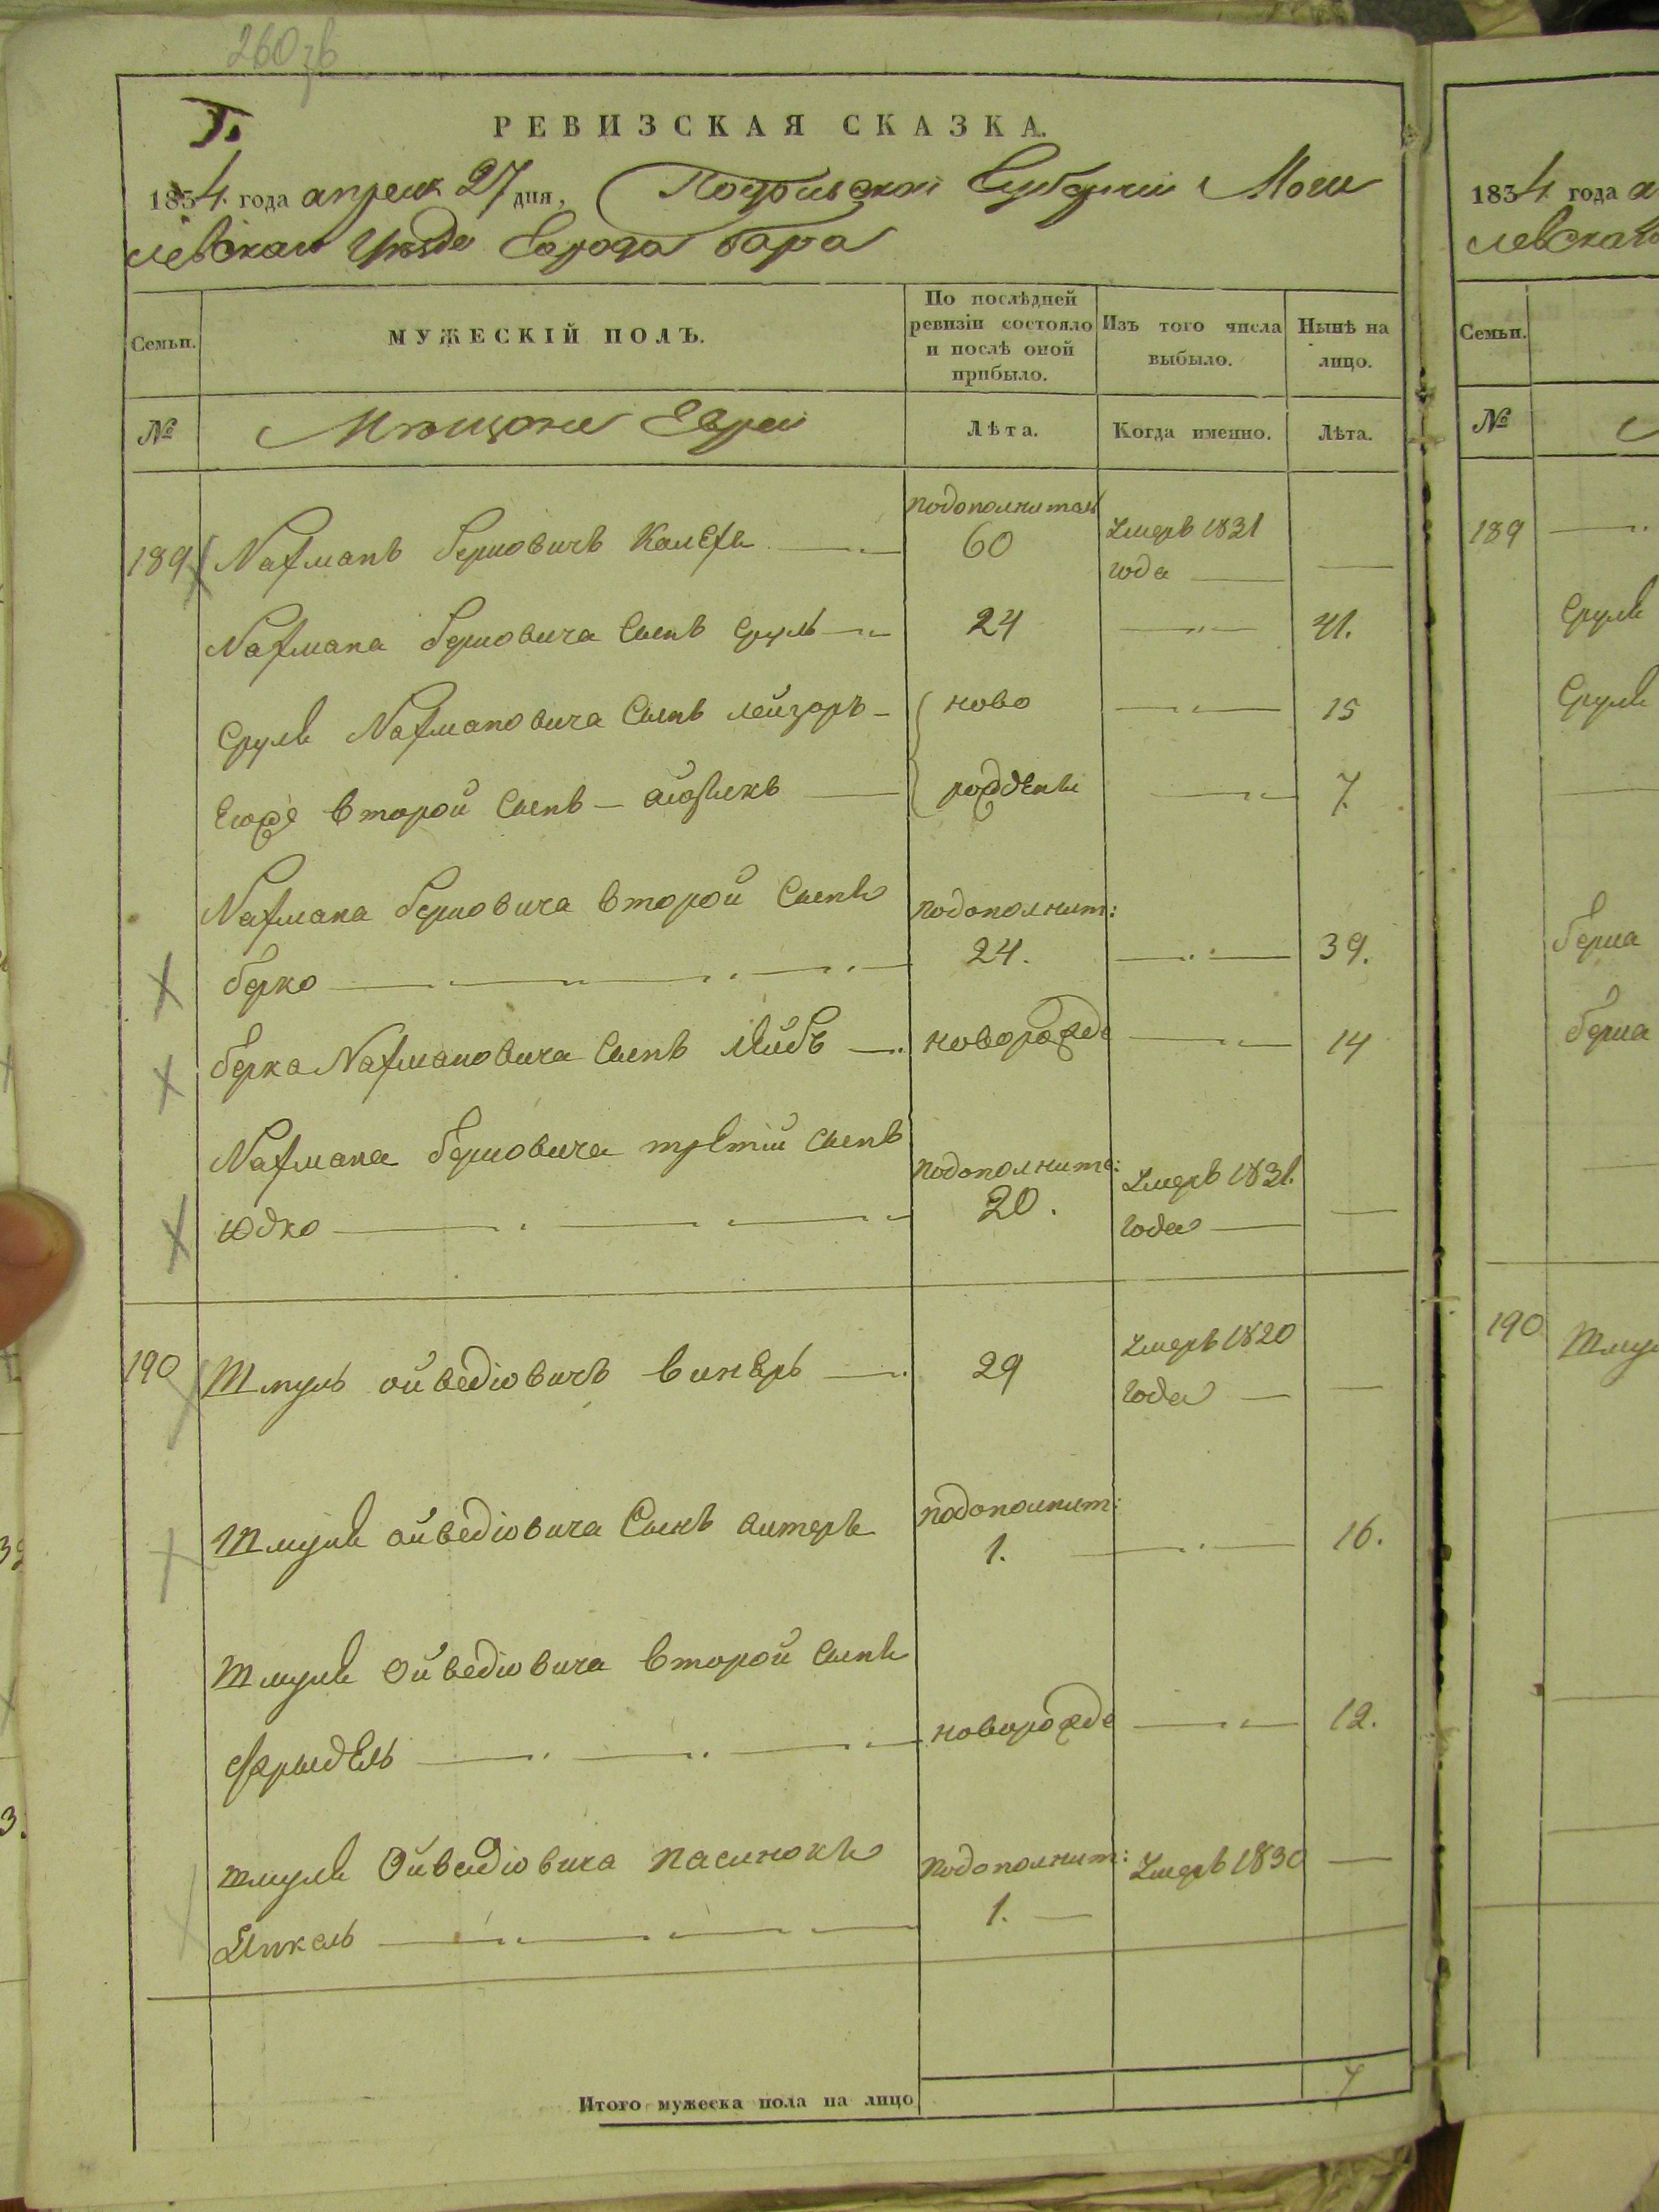 260 зв
Г.
РЕВИЗСКАЯ СКАЗКА.
1834 года апреля 27 дня, Подольской Губернии Моги
левскаго Уезда Города Бара
Семьи.
МУЖЕСКІЙ ПОЛЪ.
По послѣдней ревизіи состояло и послѣ оной прибыло.
Изъ того числа выбыло.
Нынѣ на лицо.
№ Мещане Евреи Лѣта. Когда именно. Лѣта.
подополнител
189 Нахманъ Берковичъ 60 Умеръ 1831
года
Нахмана Берковича Сынъ Сруль 24 41.
Сруля Нахмановича Сынъ Лейзоръ ново 15
Егоже второй Сынъ Айзикъ рожденъ 7.
Нахмана Берковича второй Сынъ подополнит:
Берко 24. 39.
Берка Нахмановича Сынъ Лейбъ новорожде 14
Нахмана Берковича третій Сынъ подополните: Умеръ 1831.
Юдко 20. года
190 Шмуль Ойведіовичъ Винеръ 29 Умеръ 1820
года
Шмуля Ойведіовича Сынъ Алтеръ подополнит:
1. 16.
Шмуля Ойведіовича второй Сынъ
Фрыдель новорожде 12.
Шмуля Ойведіовича Пасинокъ подополнит: Умеръ 1830
Янкель 1.
Итого мужеска пола на лицо 7
1834 года а
левскаго
Семьи.
№
189
Сруля
Сруля
Берка
Берка
190 Шму